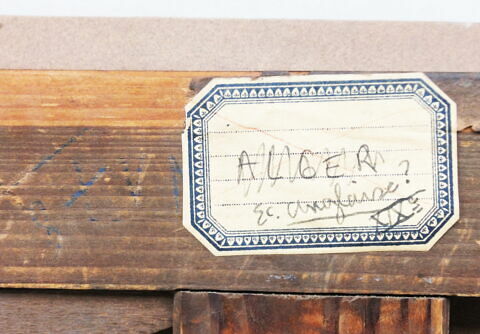 ALGER
Ec. anglaise?
XIXe